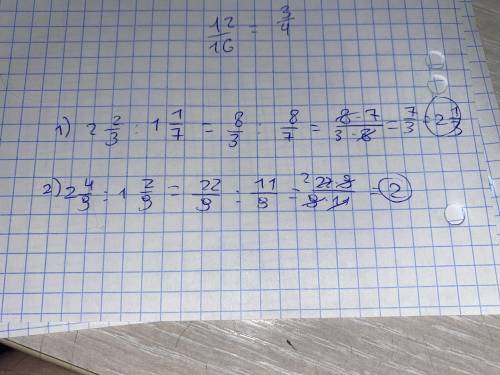 12/16 = 3/4
1) 2 2/3 : 1 1/7 = 8/3 : 8/7 = 8·7/3·8 = 7/3 = 2 1/3
2) 2 4/9 : 1 2/9 = 22/9 : 11/9 = 2 22·9/9·11 = 2